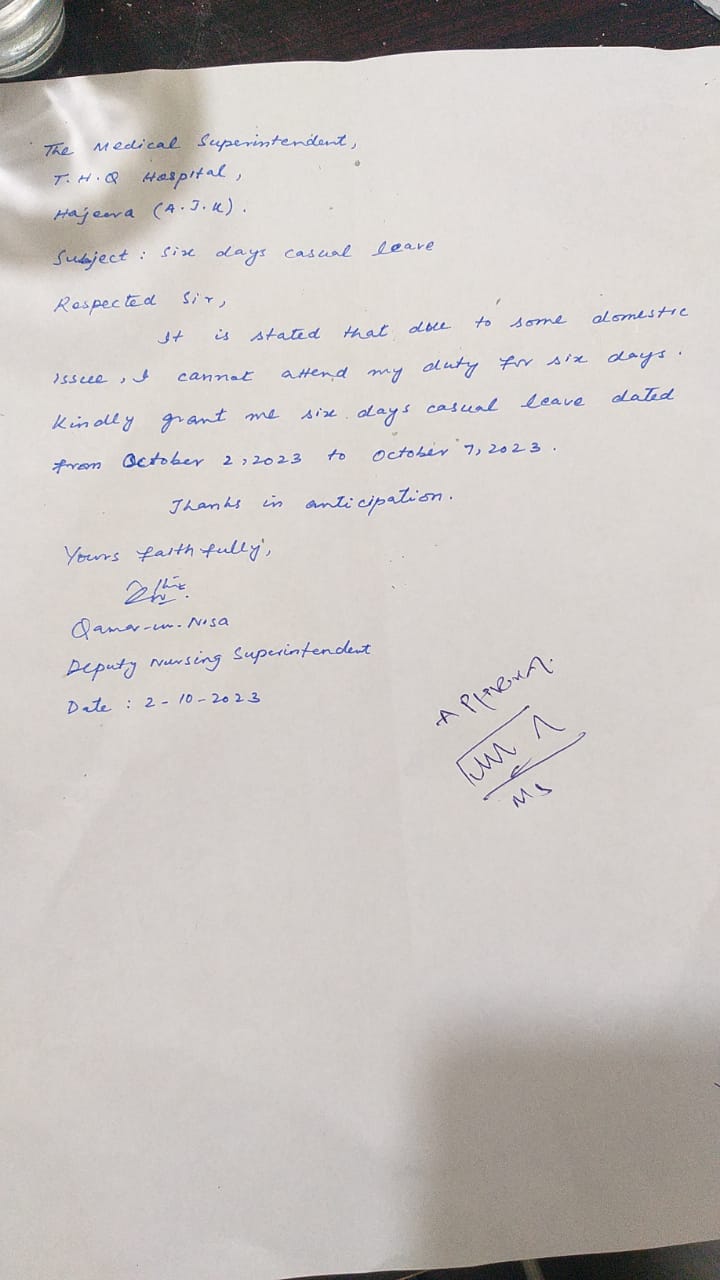 The Medical Superintendent,
T.H.Q Hospital,
Hajeera (A.J.K).
Subject : Six days casual leave
Respected Sir,
It is stated that due to some domestic
issue, I cannot attend my duty for six days.
Kindly grant me six days casual leave dated
from October 2, 2023 to October 7, 2023.
Thanks in anticipation.
Yours faithfully,
Qamar-un-Nisa
Deputy Nursing Superintendent
Date : 2-10-2023
MS